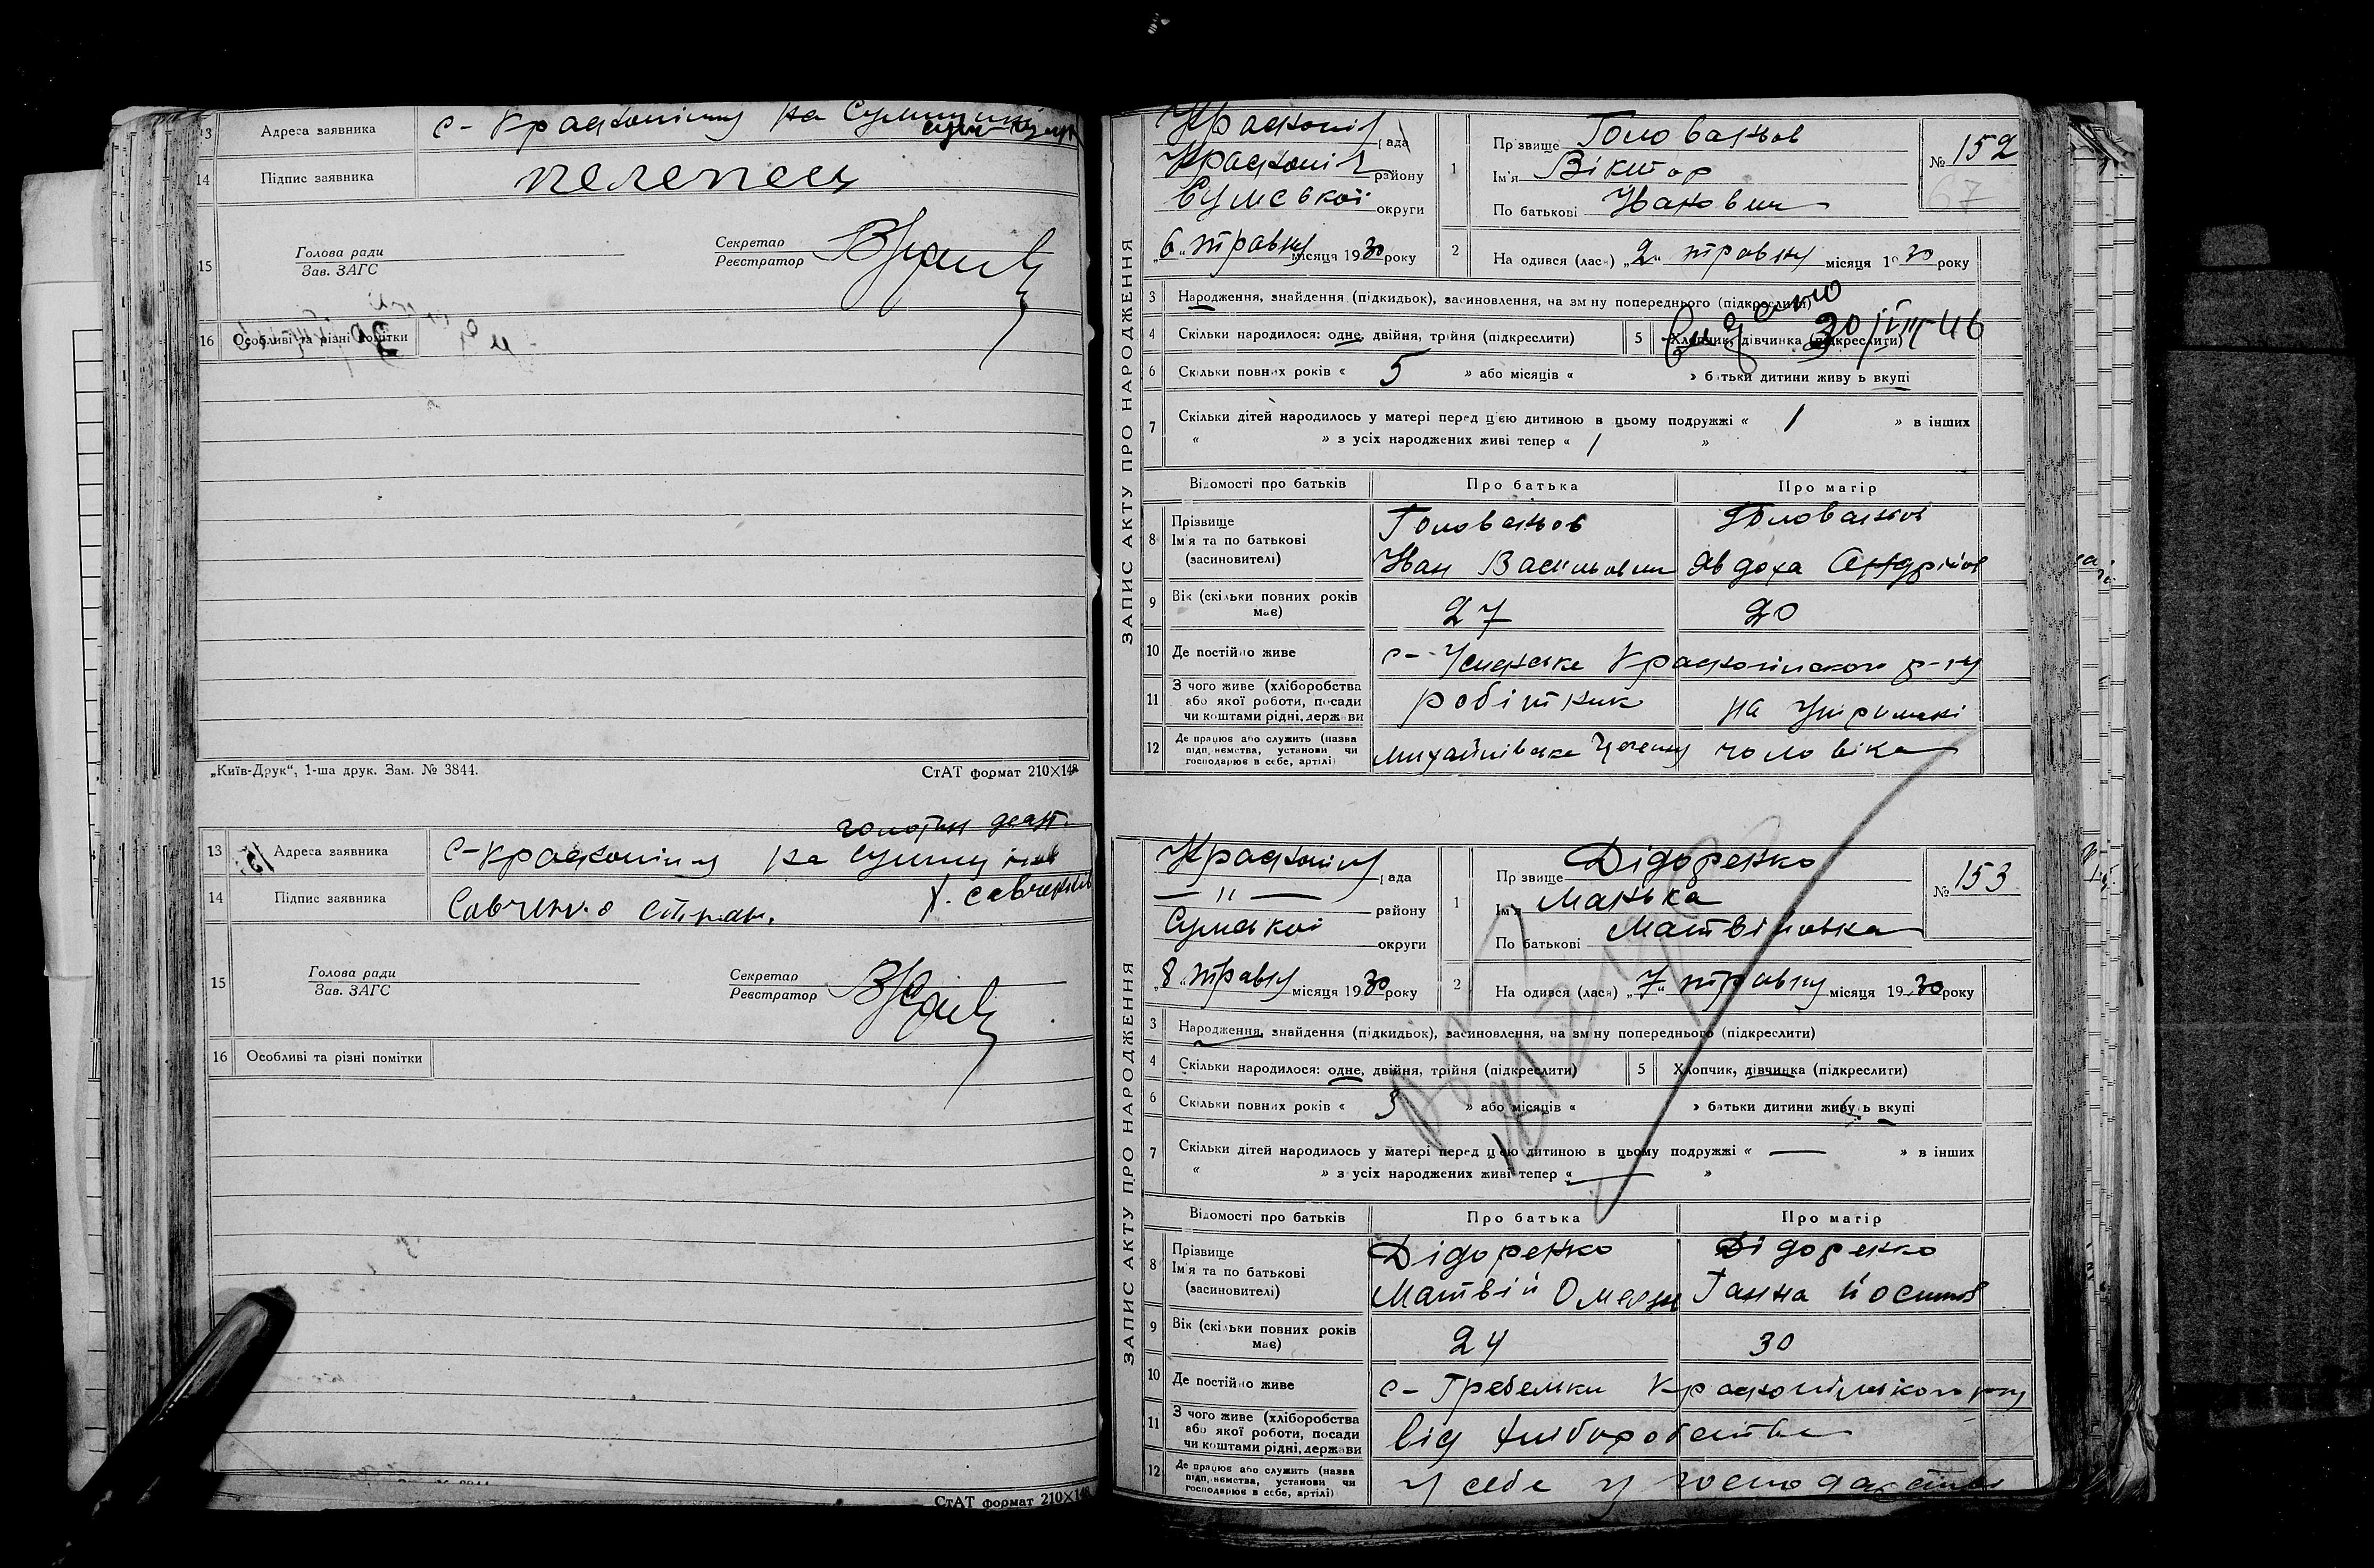 13 Адреса заявника с-Краснопілля на Сумщині
14 Підпис заявника пелепец
15 Голова ради
Зав. ЗАГС
Секретар
Реєстратор
16 Особливі та різні помітки
„Київ-Друк“, 1-ша друк. Зам. № 3844.
СтАТ формат 210×148
13 Адреса заявника с-Краснопілля на Сумщині
14 Підпис заявника Савченко Степан. Х. Савченків
15 Голова ради
Зав. ЗАГС
Секретар
Реєстратор
16 Особливі та різні помітки
СтАТ формат 210×148
ЗАПИС АКТУ ПРО НАРОДЖЕННЯ
Краснопіл рада
Краснопіл району
Сумської округи
„6“ травня місяця 1930 року
1 Прізвище Голованьов
Ім'я Віктор
По батькові Іванович
№ 152
67
2 Народився (лась) „2“ травня місяця 1930 року
3 Народження, знайдення (підкидьок), засиновлення, на зміну попереднього (підкреслити)
видано 30/VIII-46
4 Скільки народилося: одне, двійня, трійня (підкреслити)
5 Хлопчик, дівчинка (підкреслити)
6 Скільки повних років « 5 » або місяців « » батьки дитини живуть вкупі
7 Скільки дітей народилось у матері перед цією дитиною в цьому подружжі « 1 » в інших
« » з усіх народжених живі тепер « 1 »
Відомості про батьків Про батька Про матір
8 Прізвище
Ім'я та по батькові
(засиновителі)
Голованьов
Іван Васильович
Голованьов
Явдоха Андріїов
9 Вік (скільки повних років має) 27 20
10 Де постійно живе с- Краснопільского р-ну
11 З чого живе (хліборобства
або якої роботи, посади
чи коштами рідні, держави
робітник на утриманні
12 Де працює або служить (назва
підприємства, установи чи
господарює в себе, артілі)
Михайлівська чоловіка
ЗАПИС АКТУ ПРО НАРОДЖЕННЯ
Краснопілля рада
— " — району
Сумської округи
„8“ травня місяця 1930 року
1 Прізвище Дідоренко
Ім'я Манька
По батькові Матвійовна
№ 153
2 Народився (лась) „7“ травня місяця 1930 року
3 Народження, знайдення (підкидьок), засиновлення, на зміну попереднього (підкреслити)
4 Скільки народилося: одне, двійня, трійня (підкреслити)
5 Хлопчик, дівчинка (підкреслити)
6 Скільки повних років « 3 » або місяців « » батьки дитини живуть вкупі
7 Скільки дітей народилось у матері перед цією дитиною в цьому подружжі « — » в інших
« » з усіх народжених живі тепер « — »
Відомості про батьків Про батька Про матір
8 Прізвище
Ім'я та по батькові
(засиновителі)
Дідоренко
Матвій
Дідоренко
Ганна Йосипов
9 Вік (скільки повних років має) 24 30
10 Де постійно живе с- Гребелики Краснопільского р-ну
11 З чого живе (хліборобства
або якої роботи, посади
чи коштами рідні, держави
від хліборобства
12 Де працює або служить (назва
підприємства, установи чи
господарює в себе, артілі)
у себе у господарстві